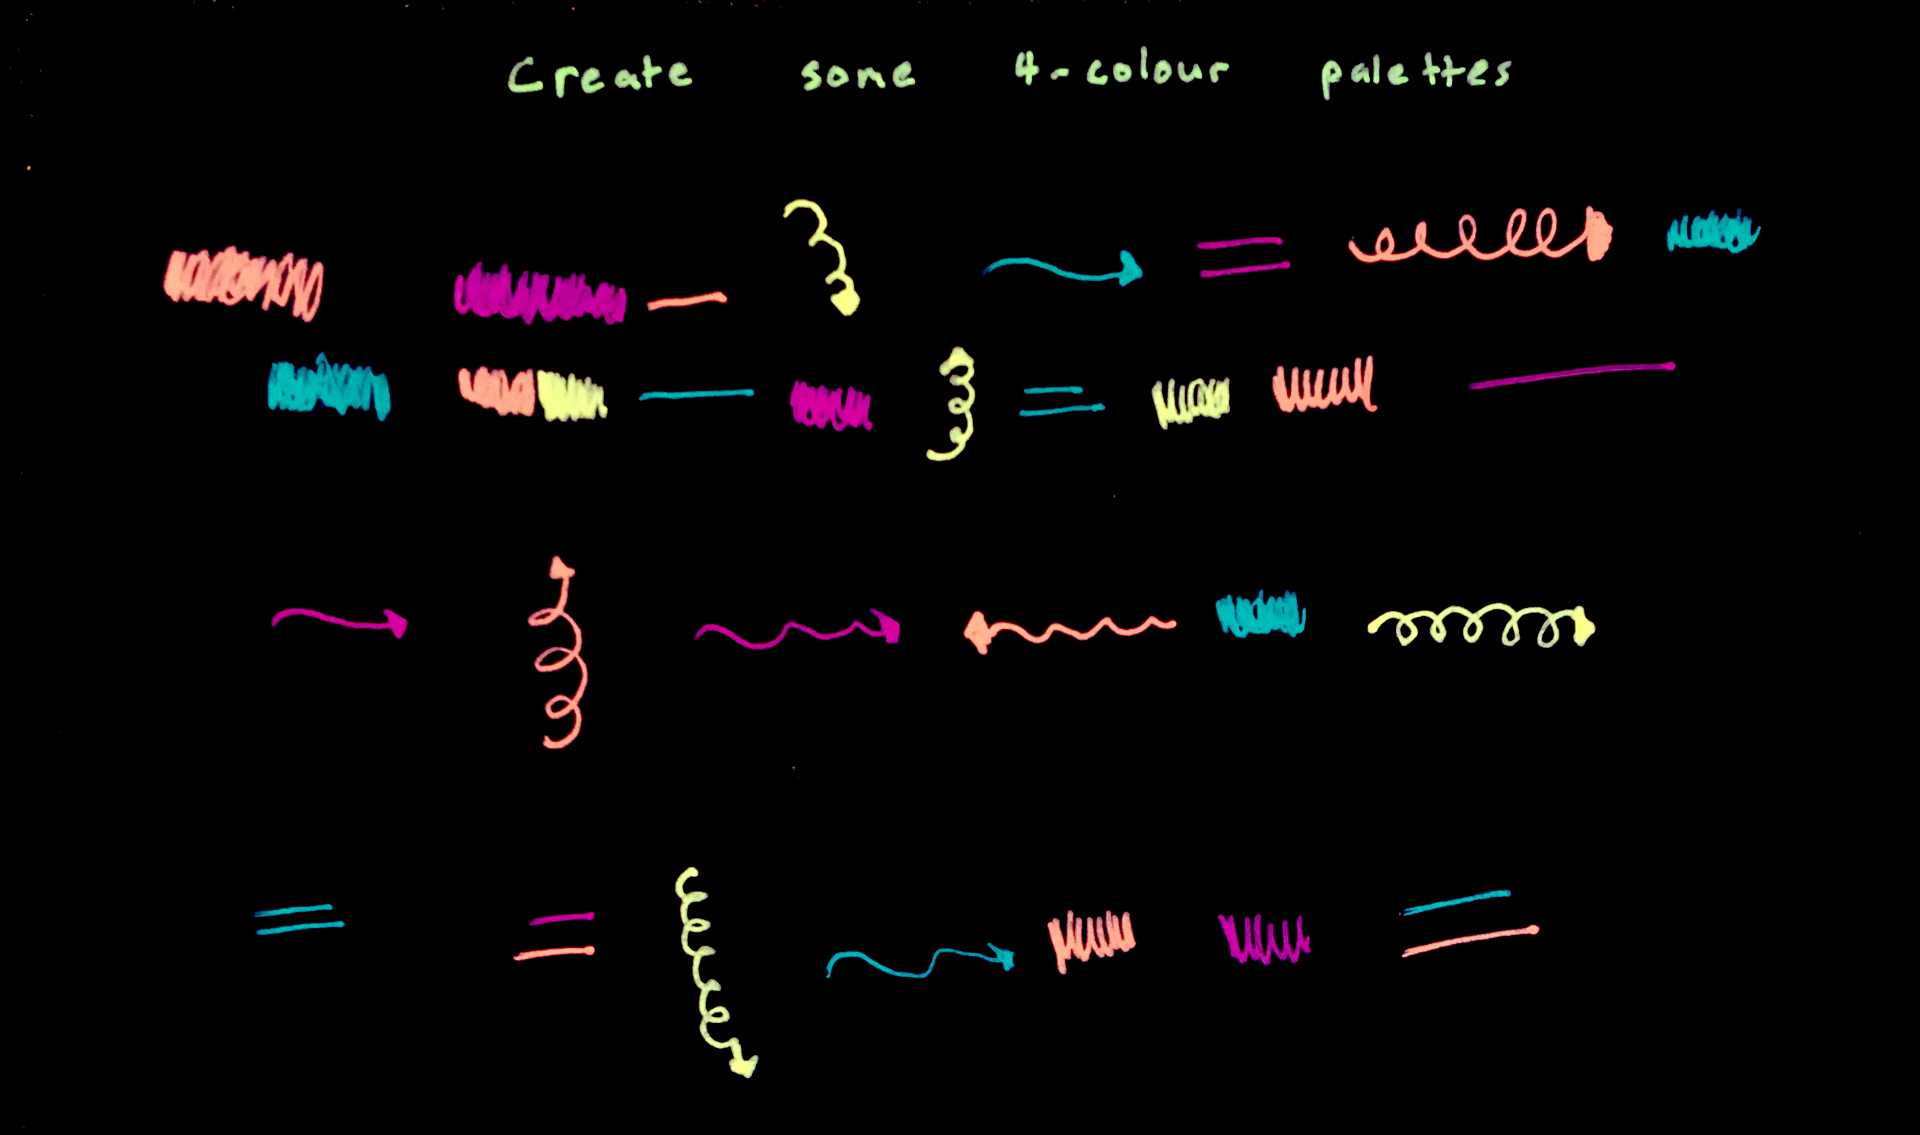 Create some 4-colour palettes